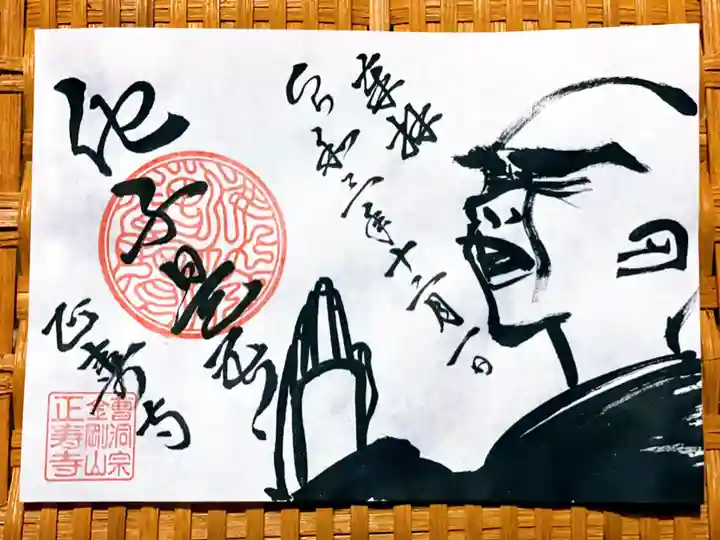 奉拝
令和二年十二月一日
他不是吾
正寿寺
曹洞宗
金剛山
正寿寺